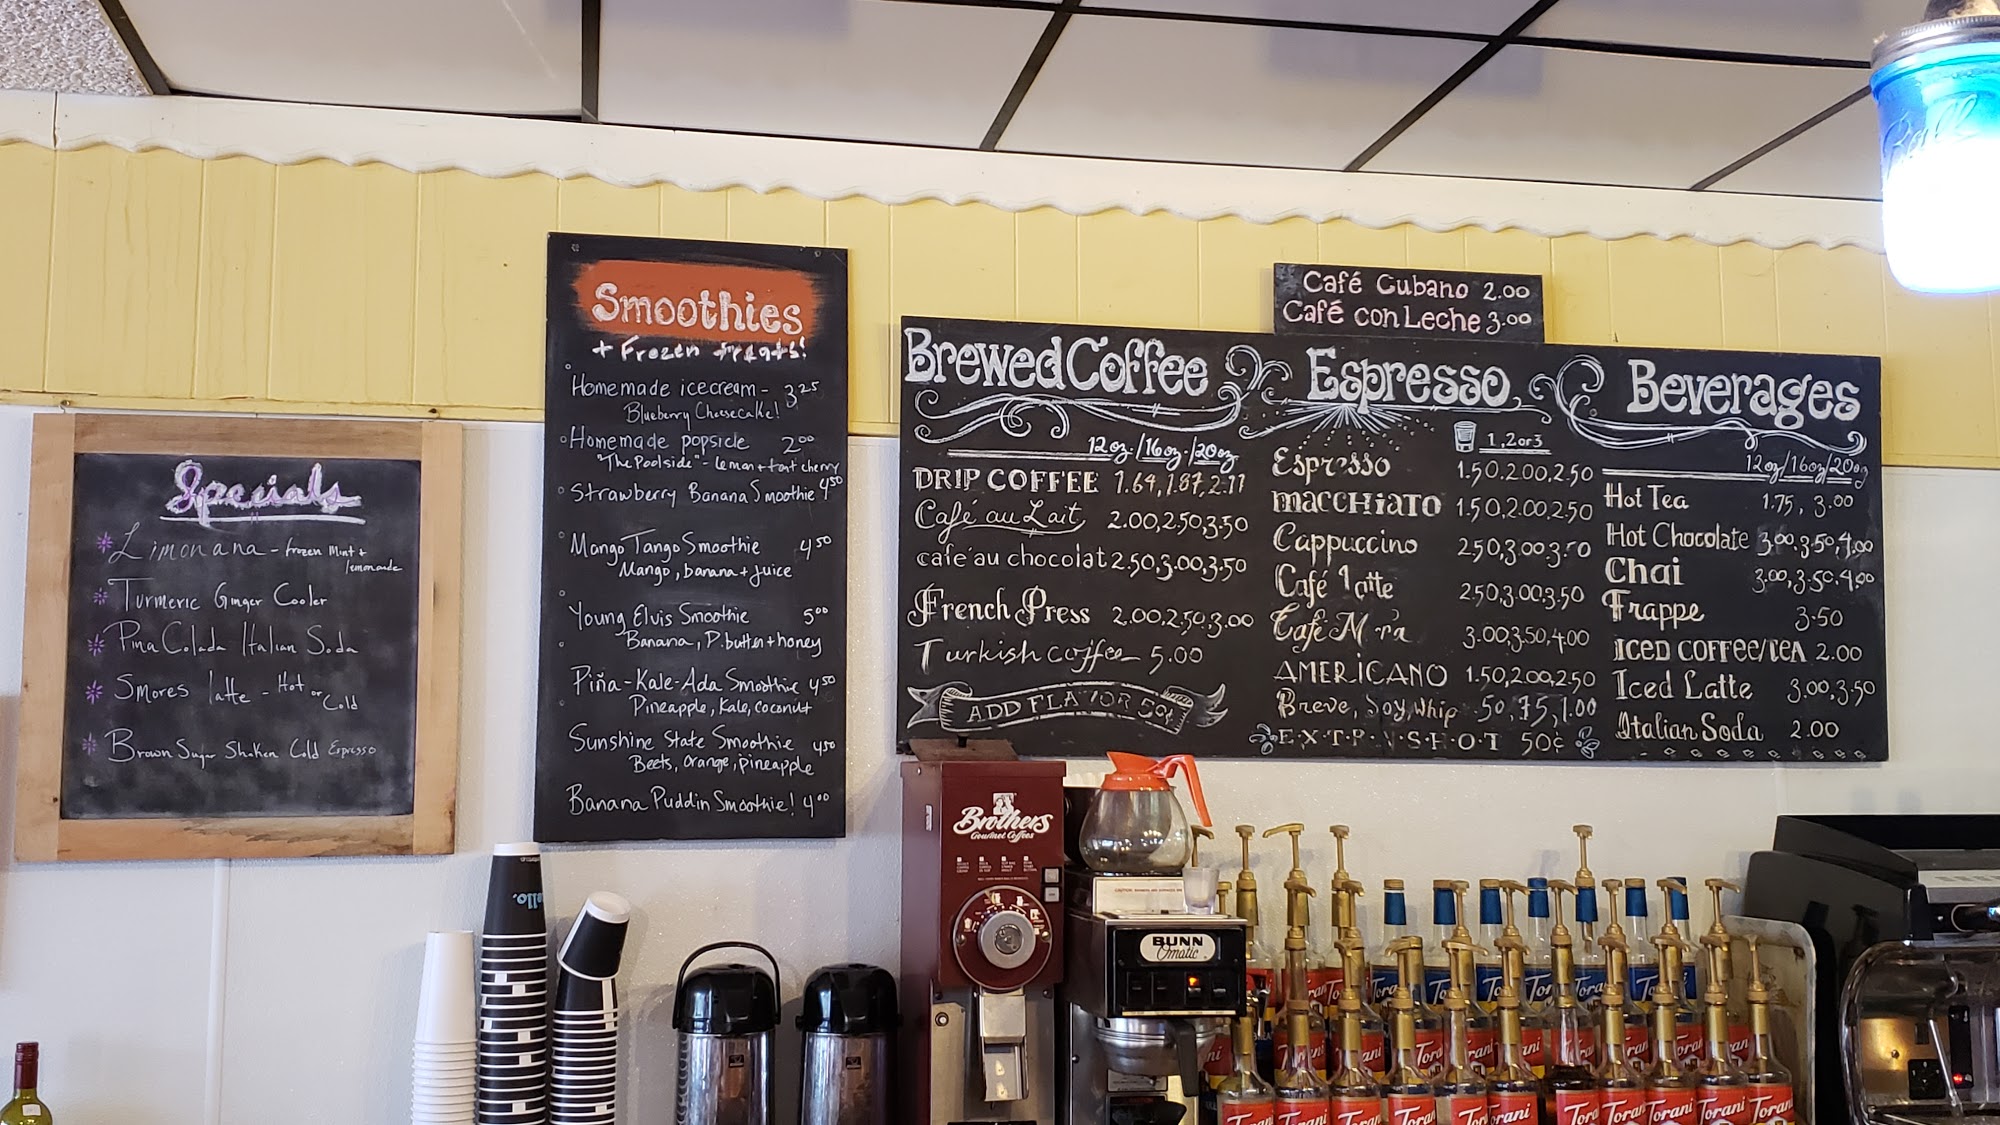 Specials
Limonana - frozen mint + lemonade
Turmeric Ginger Cooler
Pina Colada Italian Soda
Smores latte - Hot or Cold
Brown Sugar Shaken Cold Espresso
Smoothies
+ Frozen treats!
Homemade icecream - 3.25
Blueberry Cheesecake!
Homemade popsicle 2.00
"The Poolside" - lemon + tart cherry
Strawberry Banana Smoothie 4.50
Mango Tango Smoothie 4.50
Mango, banana + juice
Young Elvis Smoothie 5.00
Banana, P. butter + honey
Piña-Kale-Ada Smoothie 4.50
Pineapple, Kale, coconut
Sunshine State Smoothie 4.50
Beets, orange, pineapple
Banana Puddin Smoothie! 4.00
Café Cubano 2.00
Café con Leche 3.00
Brewed Coffee
12oz./16oz./20oz
DRIP COFFEE 1.64, 1.87, 2.11
Café au Lait 2.00, 2.50, 3.50
café au chocolat 2.50, 3.00, 3.50
French Press 2.00, 2.50, 3.00
Turkish coffee 5.00
ADD FLAVOR 50¢
Espresso
1, 2 or 3
Espresso 1.50, 2.00, 2.50
Macchiato 1.50, 2.00, 2.50
Cappuccino 2.50, 3.00, 3.50
Café latte 2.50, 3.00, 3.50
Café 3.00, 3.50, 4.00
AMERICANO 1.50, 2.00, 2.50
Breve, Soy, Whip .50, .75, 1.00
E·X·T·R·A S·H·O·T 50¢
Beverages
12oz/16oz/20oz
Hot Tea 1.75, 3.00
Hot Chocolate 3.00, 3.50, 4.00
Chai 3.00, 3.50, 4.00
Frappe 3.50
ICED COFFEE/TEA 2.00
Iced Latte 3.00, 3.50
Italian Soda 2.00
Brothers
Gourmet Coffees
BUNN
Omatic
Torani
Torani
Torani
Torani
Torani
Ball